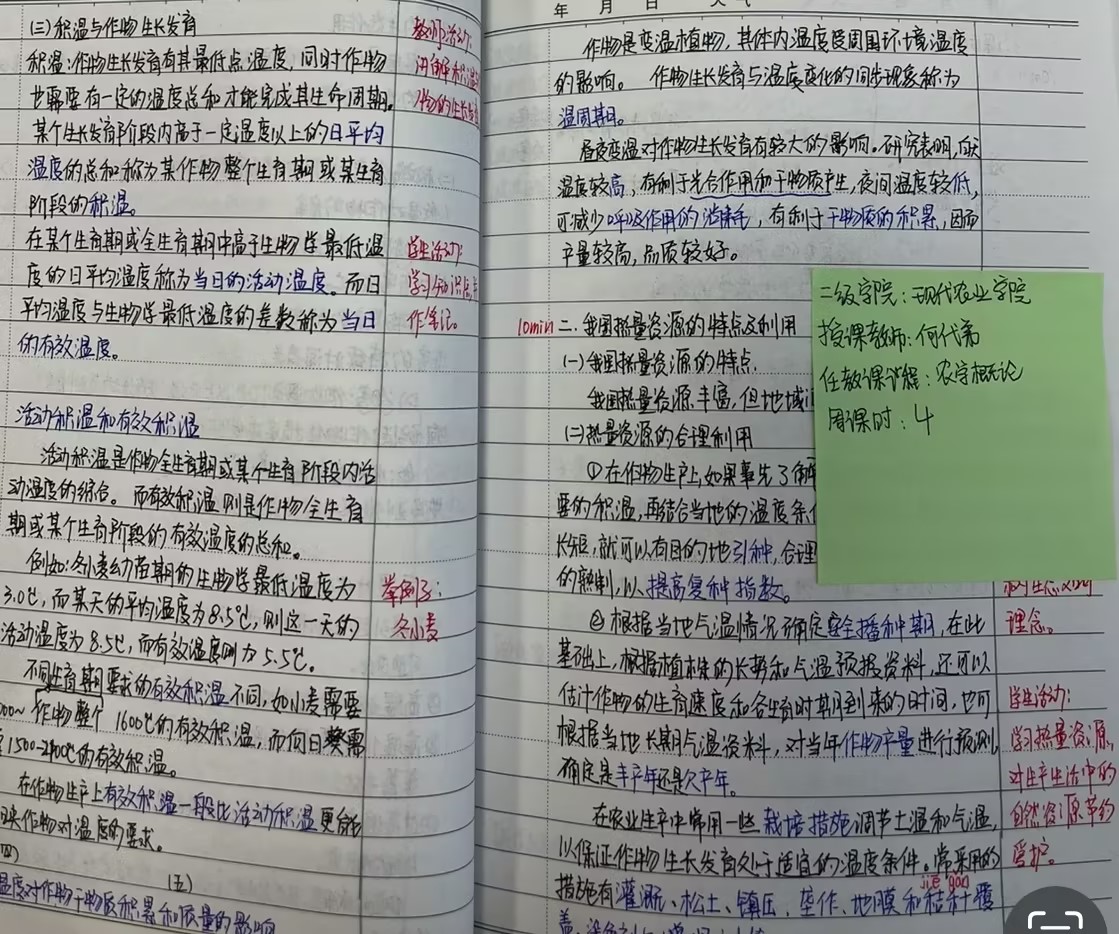 (三)积温与作物生长发育
积温:作物生长发育有其最低点温度,同时作物
也需要有一定的温度总和才能完成其生命周期。
某个生长发育阶段内高于一定温度以上的日平均
温度的总和称为某作物整个生育期或某生育
阶段的积温。
在某个生育期或全生育期中高于生物学最低温
度的日平均温度称为当日的活动温度。而日
平均温度与生物学最低温度的差数称为当日
的有效温度。
活动积温和有效积温
活动积温是作物全生育期或某个生育阶段内活
动温度的综合。而有效积温则是作物全生育
期或某个生育阶段的有效温度的总和。
例如:冬小麦幼苗期的生物学最低温度为
3.0℃,而某天的平均温度为8.5℃,则这一天的
活动温度为8.5℃,而有效温度则为5.5℃。
不同生育期要求的有效积温不同,如小麦需要
00~ 作物整个 1600℃的有效积温,而向日葵需
1500-2100℃的有效积温。
在作物生产上有效积温一般比活动积温更能
映作物对温度的要求。
(四)
(五)
温度对作物干物质积累和质量的影响
教师活动:
讲解积温
物的生长
学生活动:
学习知识点,
作笔记。
举例子:
冬小麦
年 月 日 天气
作物是变温植物,其体内温度受周围环境温度
的影响。 作物生长发育与温度变化的同步现象称为
温周期。
昼夜变温对作物生长发育有较大的影响。研究表明,白天
温度较高,有利于光合作用和干物质产生,夜间温度较低,
可减少呼吸作用的消耗,有利于干物质的积累,因而
产量较高,品质较好。
10min 二.我国热量资源的特点及利用
(一)我国热量资源的特点.
我国热量资源丰富,但地域
(二)热量资源的合理利用
①在作物生产上,如果事先了解
要的积温,再结合当地的温度条
长短,就可以有目的地引种,合理
的熟制,以提高复种指数。
②根据当地气温情况确定安全播种期,在此
基础上,根据植株的长势和气温预报资料,还可以
估计作物的生育速度和各生育时期到来的时间,也可
根据当地长期气温资料,对当年作物产量进行预测,
确定是丰产年还是欠产年。
在农业生产中常用一些栽培措施调节土温和气温,
以保证作物生长发育处于适宜的温度条件。常采用的
jiē gǎn
措施有灌溉、松土、镇压、垄作、地膜和秸秆覆
盖
二级学院:现代农业学院
授课教师:何代弟
任教课课程:农学概论
周课时:4
理念。
学生活动:
学习热量资源,
对生产生活中的
自然资源节约
爱护。